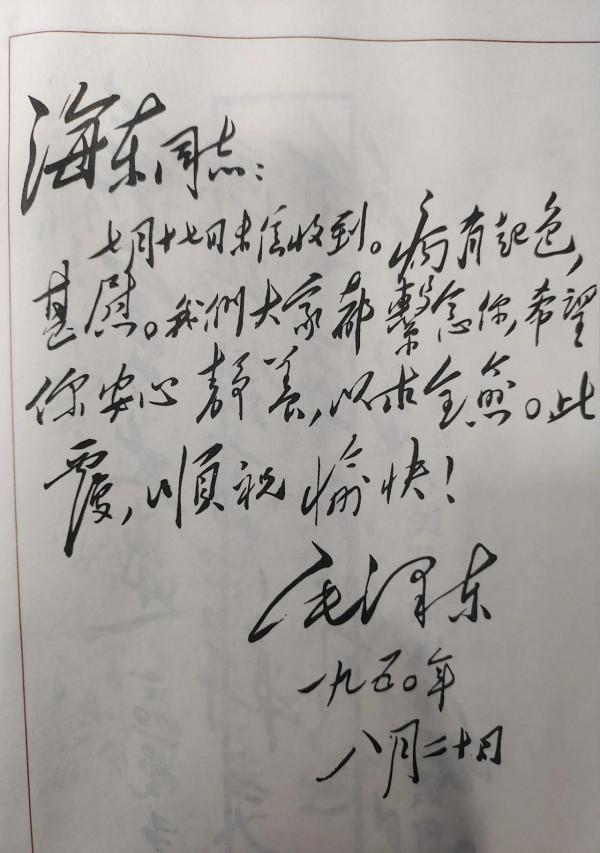 海东同志：
七月十七日来信收到。病有起色，
甚慰。我们大家都繫念你，希望
你安心静养，以求全愈。此
覆，順祝愉快！
毛泽东
一九五〇年
八月二十日